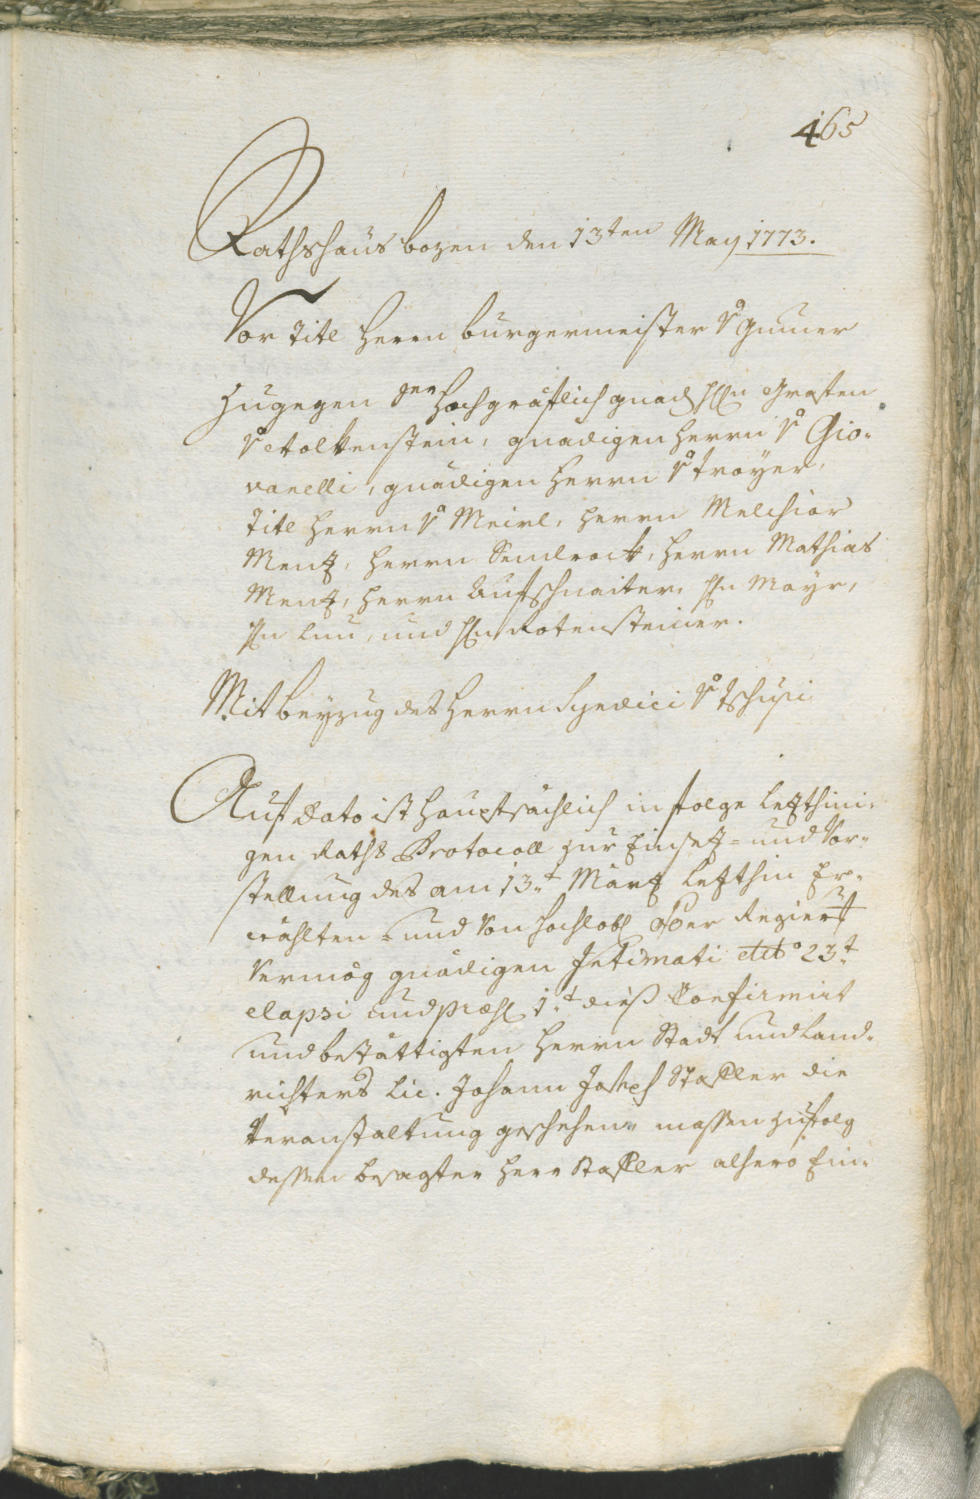 465
Rathshaus bozen den 13ten May 1773.
Vor Titl Herrn burgermeister v Gumer
Zugegen der Hochgräflich gnäd Hn Grafen
v Wolkenstein, gnädigen Herrn v Gio-
vanelli, gnädigen Herrn v Troyer,
Titl Herrn v Meirl, Herrn Melchior
Menz, Herrn Mathias
Menz, Herrn Aufschnaiter, Hn Mayr,
Hn und Hn Rotensteiner.
Mit beyzug des Herrn Syndici v Tschusi
Auf dato ist haubtsächlich in folge letsthini-
gen Raths Protocoll zur Einsetz- und Vor-
stellung des am 13t Martz letsthin Er-
wählten - und von hochlobl oöer Regier
vermög gnädigen Intimati dto 23t
elapsi und præs 1t dieß Confirmirt
und bestättigten Herrn Stadt und Land-
richters Lic. Johann Joseph Stapler die
Veranstaltung geschehen, massen zufolg
dessen besagter Herr Stapler alhero Ein-